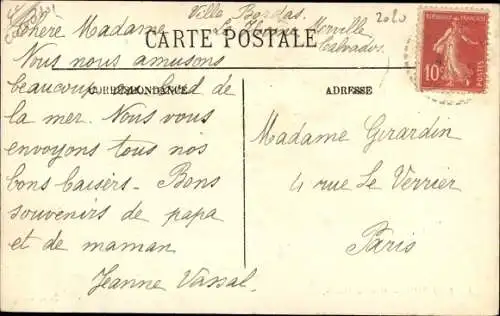 Chère Madame
Villa Bordas.
2020
CARTE POSTALE
Merville
Calvados.
Nous nous amusons
beaucoup au bord de
CORRESPONDANCE
la mer. Nous vous
envoyons tous nos
bons baisers - Bons
souvenirs de papa
et de maman
Jeanne Vassal.
REPUBLIQUE FRANÇAISE
10c
POSTES
ADRESSE
Madame Girardin
4 rue Le Verrier
Paris